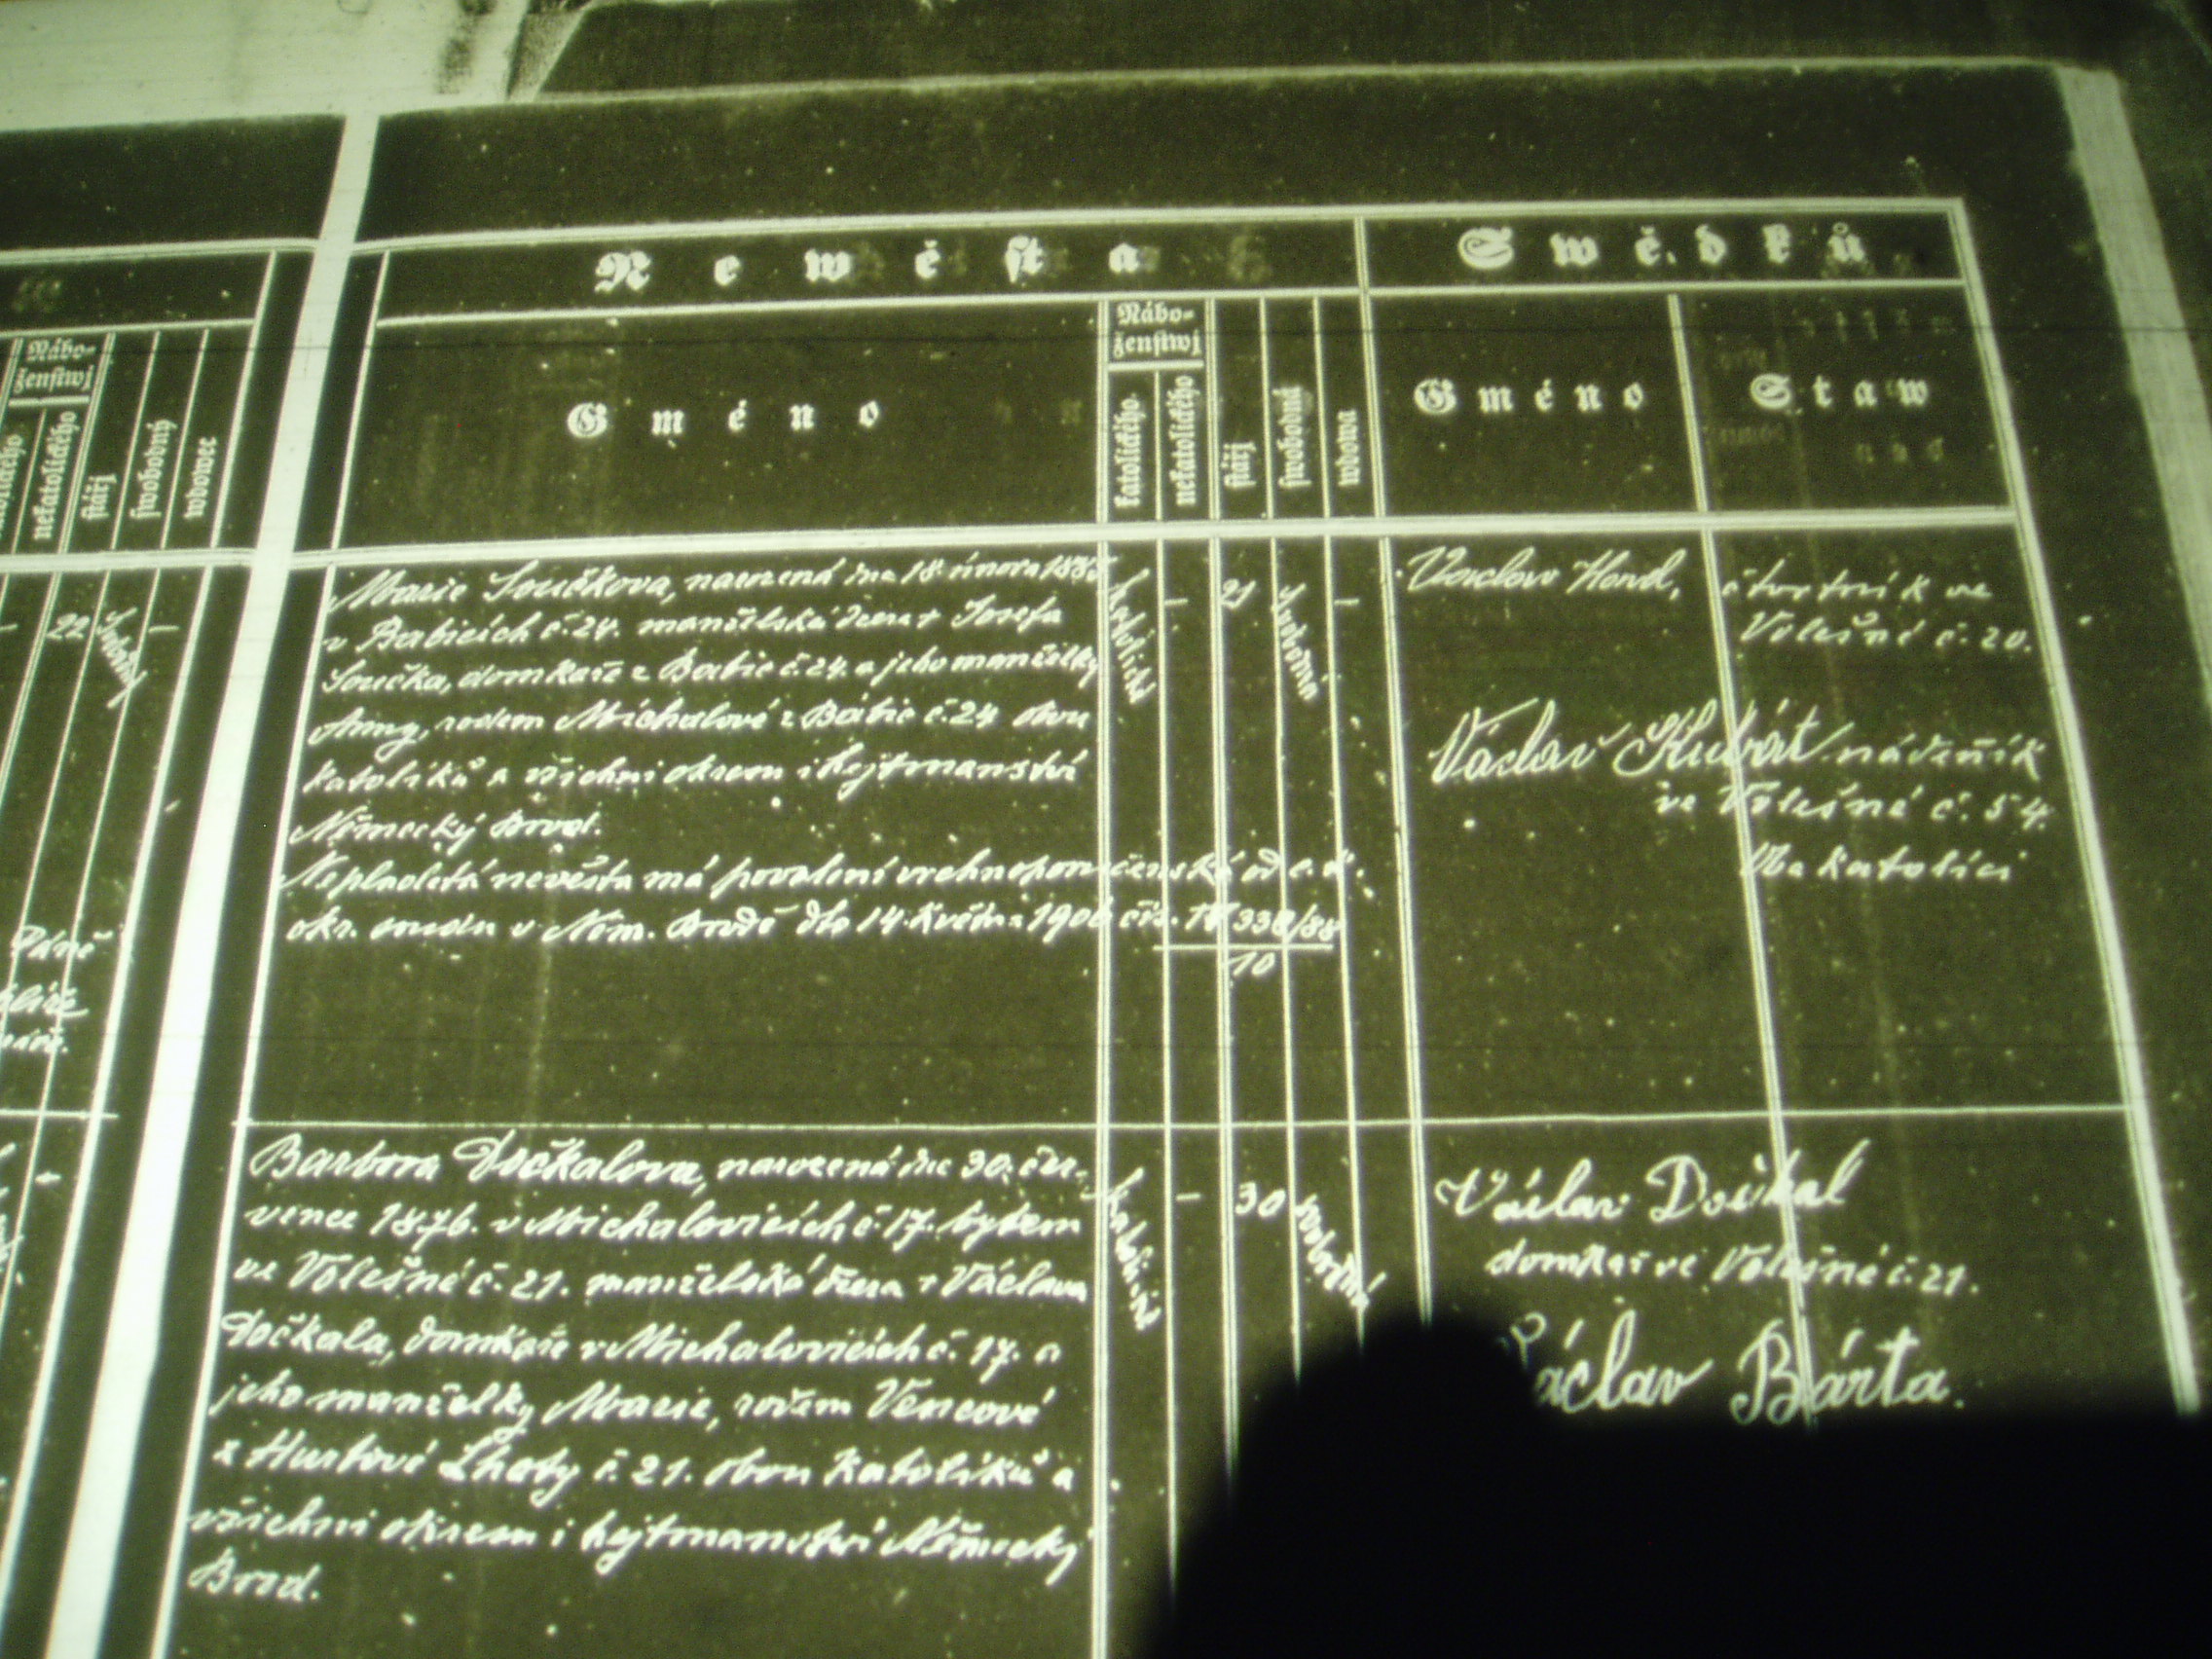 Newěsta
Swědků
Nábo-
ženstwj
nekatolického
stářj
swobodný
wdowec
Gméno
Nábo-
ženstwj
katolického
nekatolického
stářj
swobodná
wdowa
Gméno
Staw
22
svobodný
Marie Součkova, narozená dne 18. února 1885
v Babicích č. 24. manželská dcera + Josefa
Součka, domkaře z Babic č. 24. a jeho manželky
Anny, rodem Michalové z Babic č. 24 obou
katolíků a všichni okresu i hejtmanství
Německý Brod.
Neplnoletá nevěsta má povolení vrchnoporučenské od c. k.
okr. soudu v Něm. Brodě dto 14. května 1906 čís. 338/88
10
katolické
–
21
svobodná
–
Václav Hond,
čtvrtník ve
Volešné č. 20.
Václav Kubát nádeník
ve Volešné č. 54.
Oba katolíci
Barbora Dočkalova, narozená dne 30. čer-
vence 1876. v Michalovicích č. 17. bytem
ve Volešné č. 21. manželská dcera + Václava
Dočkala, domkaře v Michalovicích č. 17. a
jeho manželky Marie, rodem Vencové
z Hurtové Lhoty č. 21. obou katolíků a
všichni okresu i hejtmanství Německý
Brod.
katolické
–
30
svobodná
Václav Dočkal
domkař ve Volešné č. 21.
Václav Bárta.